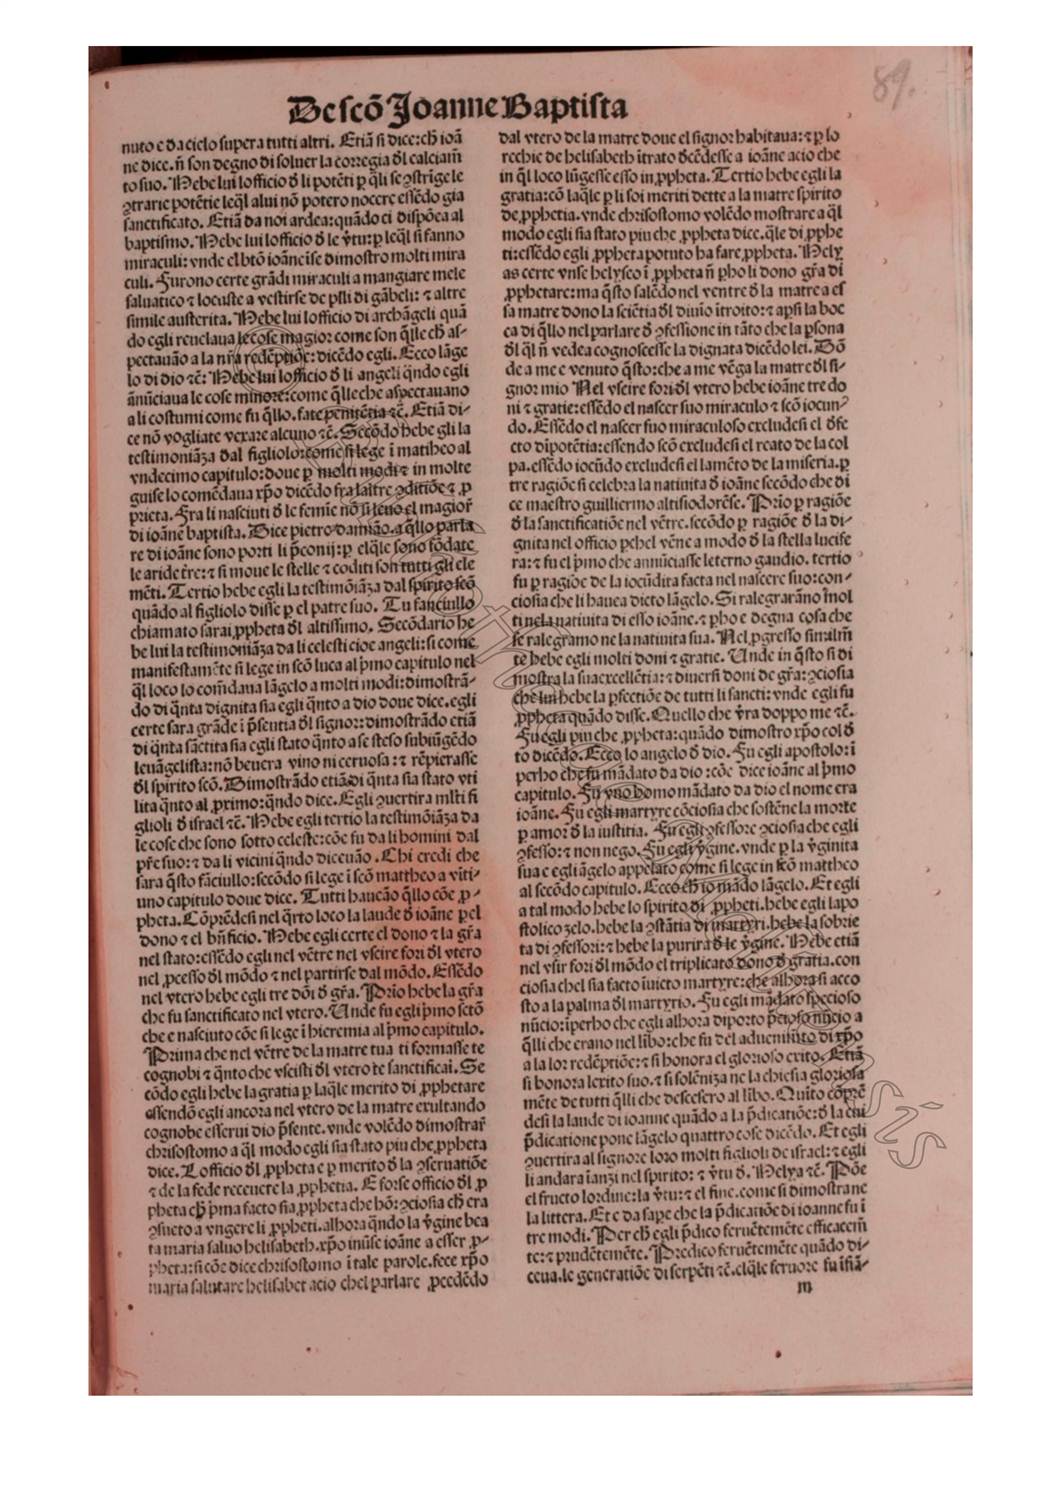 De scō Joanne Baptista
89.
nuto e da cielo supera tutti altri. Etiā si dice: ch̄ ioā
ne dice. n̄ son degno di soluer la corregia dl̄ calciam̄
to suo. Hebe lui lofficio d̄ li potēti ꝑ q̄li se ꝯstrige le
ꝯtrarie potētie leq̄l alui nō potero nocere essēdo gia
sanctificato. Etiā da noi ardea: quādo ci dispōea al
baptismo. Hebe lui lofficio d̄ le v̄tu: ꝑ leq̄l si fanno
miraculi: vnde el btō ioāne ise dimostro molti mira
culi. Furono certe grādi miraculi a mangiare mele
saluatico ⁊ locuste a vestirse de pslli di gābeli: ⁊ altre
simile austerita. Hebe lui lofficio di archāgeli quā
do egli reuelaua le cose magior come son q̄lle ch̄ as-
pectauāo a la nr̄a redēptiōe: dicēdo egli. Ecco lāge
lo di dio ⁊c̄: Hebe lui lofficio d̄ li angeli qn̄do egli
ānūciaua le cose minore: come q̄lle che aspectauano
a li costumi come fu q̄llo. fate penitētia ⁊c̄. Etiā di-
ce nō vogliate vexare alcuno ⁊c̄. Secōdo hebe gli la
testimoniāza dal figliolo: come si lege ī mattheo al
vndecimo capitulo: doue ꝑ molti modi ⁊ in molte
guise lo comēdaua xp̄o dicēdo fra laltre ꝯditiōe ⁊ ꝓ
prieta. Fra li nasciuti d̄ le femīe nō si leuo el magior̄
di ioāne baptista. Dice pietro damiāo. a q̄llo parla
re di ioāne sono porti li p̄conij: ꝑ elq̄le sono fōdate
le aride tr̄re: ⁊ si moue le stelle ⁊ coditi son tutti gli ele
mēti. Tertio hebe egli la testimōiāza dal spirito scō
quādo al figliolo disse ꝑ el patre suo. Tu fanciullo
chiamato sarai ꝓpheta dl̄ altissimo. Secōdario he
be lui la testimoniāza da li celesti cioe angeli: si come
manifestamēte si lege in scō luca al p̄mo capitulo nel
q̄l loco lo com̄daua lāgelo a molti modi: dimostrā-
do di q̄nta dignita sia egli q̄nto a dio doue dice. egli
certe sara grāde ī p̄sentia dl̄ signor: dimostrādo etiā
di q̄nta sāctita sia egli stato q̄nto a se steso subiūgēdo
leuāgelista: nō beuera vino ni ceruosa: ⁊ rēpierasse
dl̄ spirito scō. Dimostrādo etiādi q̄nta sia stato vti
lita q̄nto al ꝓximo: qn̄do dice. Egli ꝯuertira ml̄ti fi
glioli d̄ israel ⁊c̄. Hebe egli tertio la testimōiāza da
le cose che sono sotto celeste: cōe fu da li homini dal
pr̄e suo: ⁊ da li vicini qn̄do diceuāo. Chi credi che
sara q̄sto fāciullo: secōdo si lege ī scō mattheo a viti-
uno capitulo doue dice. Tutti haueāo q̄llo cōe ꝓ-
pheta. Cōprēdesi nel q̄rto loco la laude d̄ ioāne ꝑ el
dono ⁊ el bn̄ficio. Hebe egli certe el dono ⁊ la gr̄a
nel stato: essēdo egli nel vētre nel vscire fori dl̄ vtero
nel ꝓcesso dl̄ mōdo ⁊ nel partirse dal mōdo. Essēdo
nel vtero hebe egli tre dōi d̄ gr̄a. Prīo hebe la gr̄a
che fu sanctificato nel vtero. Unde fu egli p̄mo sctō
che e nasciuto cōe si lege ī hieremia al p̄mo capitulo.
Prima che nel vētre de la matre tua ti formasse te
cognobi ⁊ q̄nto che vscisti dl̄ vtero te sanctificai. Se
cōdo egli hebe la gratia ꝑ laq̄le merito di ꝓphetare
essendo egli ancora nel vtero de la matre exultando
cognobe esserui dio p̄sente. vnde volēdo dimostrar̄
chrisostomo a q̄l modo egli sia stato piu che ꝓpheta
dice. Lofficio dl̄ ꝓpheta e ꝑ merito d̄ la ꝯseruatiōe
⁊ de la fede receuere la ꝓphetia. E forse officio dl̄ ꝓ
pheta ch̄ p̄ma facto sia ꝓpheta che hō: ꝯciosia ch̄ era
ꝯsueto a vngere li ꝓpheti. alhora qn̄do la v̄gine bea
ta maria saluo helisabeth. xp̄o inūse ioāne a esser ꝓ-
pheta: si cōe dice chrisostomo ī tale parole. fece xp̄o
maria salutare helisabet acio chel parlare ꝓcedēdo
dal vtero de la matre doue el signor habitaua: ⁊ ꝑ lo
rechie de helisabeth ītrato dēcēdesse a ioāne acio che
in q̄l loco lūgesse esso in ꝓpheta. Tertio hebe egli la
gratia: cō laq̄le ꝑ li soi meriti dette a la matre spirito
de ꝓphetia. vnde chrisostomo volēdo mostrare a q̄l
modo egli sia stato piu che ꝓpheta dice. q̄le di ꝓphe
ti: essēdo egli ꝓpheta potuto ha fare ꝓpheta. Hely
as certe vnse helyseo ī ꝓpheta n̄ ꝑho li dono gr̄a di
ꝓphetare: ma q̄sto salēdo nel ventre d̄ la matre a es
sa matre dono la sciētia dl̄ diuīo ītroito: ⁊ apsi la boc
ca di q̄llo nel parlare d̄ ꝯfessione in tāto che la ꝑsona
dl̄ q̄l n̄ vedea cognoscesse la dignata dicēdo lei. Dō
de a me e venuto q̄sto: che a me vēga la matre dl̄ si-
gnor mio Nel vscire fori dl̄ vtero hebe ioāne tre do
ni ⁊ gratie: essēdo el nascer suo miraculo ⁊ scō iocun
do. Essēdo el nascer suo miraculoso excludesi el d̄fe
cto dīpotētia: essendo scō excludesi el reato de la col
pa. essēdo iocūdo excludesi el lamēto de la miseria. ꝑ
tre ragiōe si celebra la natiuita d̄ ioāne secōdo che di
ce maestro guillermo altisiodorēse. Prīo ꝑ ragiōe
d̄ la sanctificatiōe nel vētre. secōdo ꝑ ragiōe d̄ la di-
gnita nel officio ꝑchel vēne a modo d̄ la stella lucife
ra: ⁊ fu el p̄mo che annūciasse leterno gaudio. tertio
fu ꝑ ragiōe de la iocūdita facta nel nascere suo: con-
ciosia che li hauea dicto lāgelo. Si ralegrarāno īmol
ti nela natiuita di esso ioāne. ⁊ ꝑho e degna cosa che
se ralegramo ne la natiuita sua. Nel ꝓgresso similm̄
te hebe egli molti doni ⁊ gratie. Unde in q̄sto si di
mostra la sua excellētia: ⁊ diuersi doni de gr̄a: ꝯciosia
che lui hebe la ꝑfectiōe de tutti li sancti: vnde egli fu
ꝓpheta quādo disse. Quello che vr̄a doppo me ⁊c̄.
Fu egli piu che ꝓpheta: quādo dimostro xp̄o col d̄
to dicēdo. Ecco lo angelo d̄ dio. Fu egli apostolo: ī
perho che fu mādato da dio: cōe dice ioāne al p̄mo
capitulo. Fu vno homo mādato da dio el nome era
ioāne. Fu egli martyre cōciosia che sostēne la morte
ꝑ amor d̄ la iustitia. Fu egli ꝯfessore ꝯciosia che egli
ꝯfesso: ⁊ non nego. Fu egli v̄gine. vnde ꝑ la v̄ginita
sua e egli āgelo appelato come si lege in scō mattheo
al secōdo capitulo. Ecco ch̄ io mādo lāgelo. Et egli
a tal modo hebe lo spirito di ꝓpheti. hebe egli lapo
stolico zelo. hebe la ꝯstātia di martyri. hebe la sobrie
ta di ꝯfessori: ⁊ hebe la purira d̄ le v̄gine. Hebe etiā
nel vsir fori dl̄ mōdo el triplicato dono d̄ gratia. con
ciosia chel sia facto īuicto martyre: che alhora si acco
sto a la palma dl̄ martyrio. Fu egli mādato specioso
nūcio: īperho che egli alhora diporto p̄cioso nūcio a
q̄lli che erano nel lībo: che fu del aduenimūto di xp̄o
a la lor redēptiōe: ⁊ si honora el glorioso exito. Etiā
si honora lexito suo. ⁊ si solēniza ne la chiesia gloriosa
mēte de tutti q̄lli che descesero al libo. Quīto cōprē
desi la laude di ioanne quādo a la p̄dicatiōe: d̄ la cui
p̄dicatione pone lāgelo quattro cose dicēdo. Et egli
ꝯuertira al signore loro molti figlioli de israel: ⁊ egli
li andara īanzi nel spirito: ⁊ v̄tu d̄. Helya ⁊c̄. Pōe
el fructo lordine: la v̄tu: ⁊ el fine. come si dimostra ne
la littera. Et e da sape che la p̄dicatiōe di ioanne fu ī
tre modi. Per ch̄ egli p̄dico feruētemēte efficacem̄
te: ⁊ prudētemēte. Predico feruētemēte quādo di-
ceua. le generatiōe di serpēti ⁊c̄. elq̄le feruore fu īfiā-
m